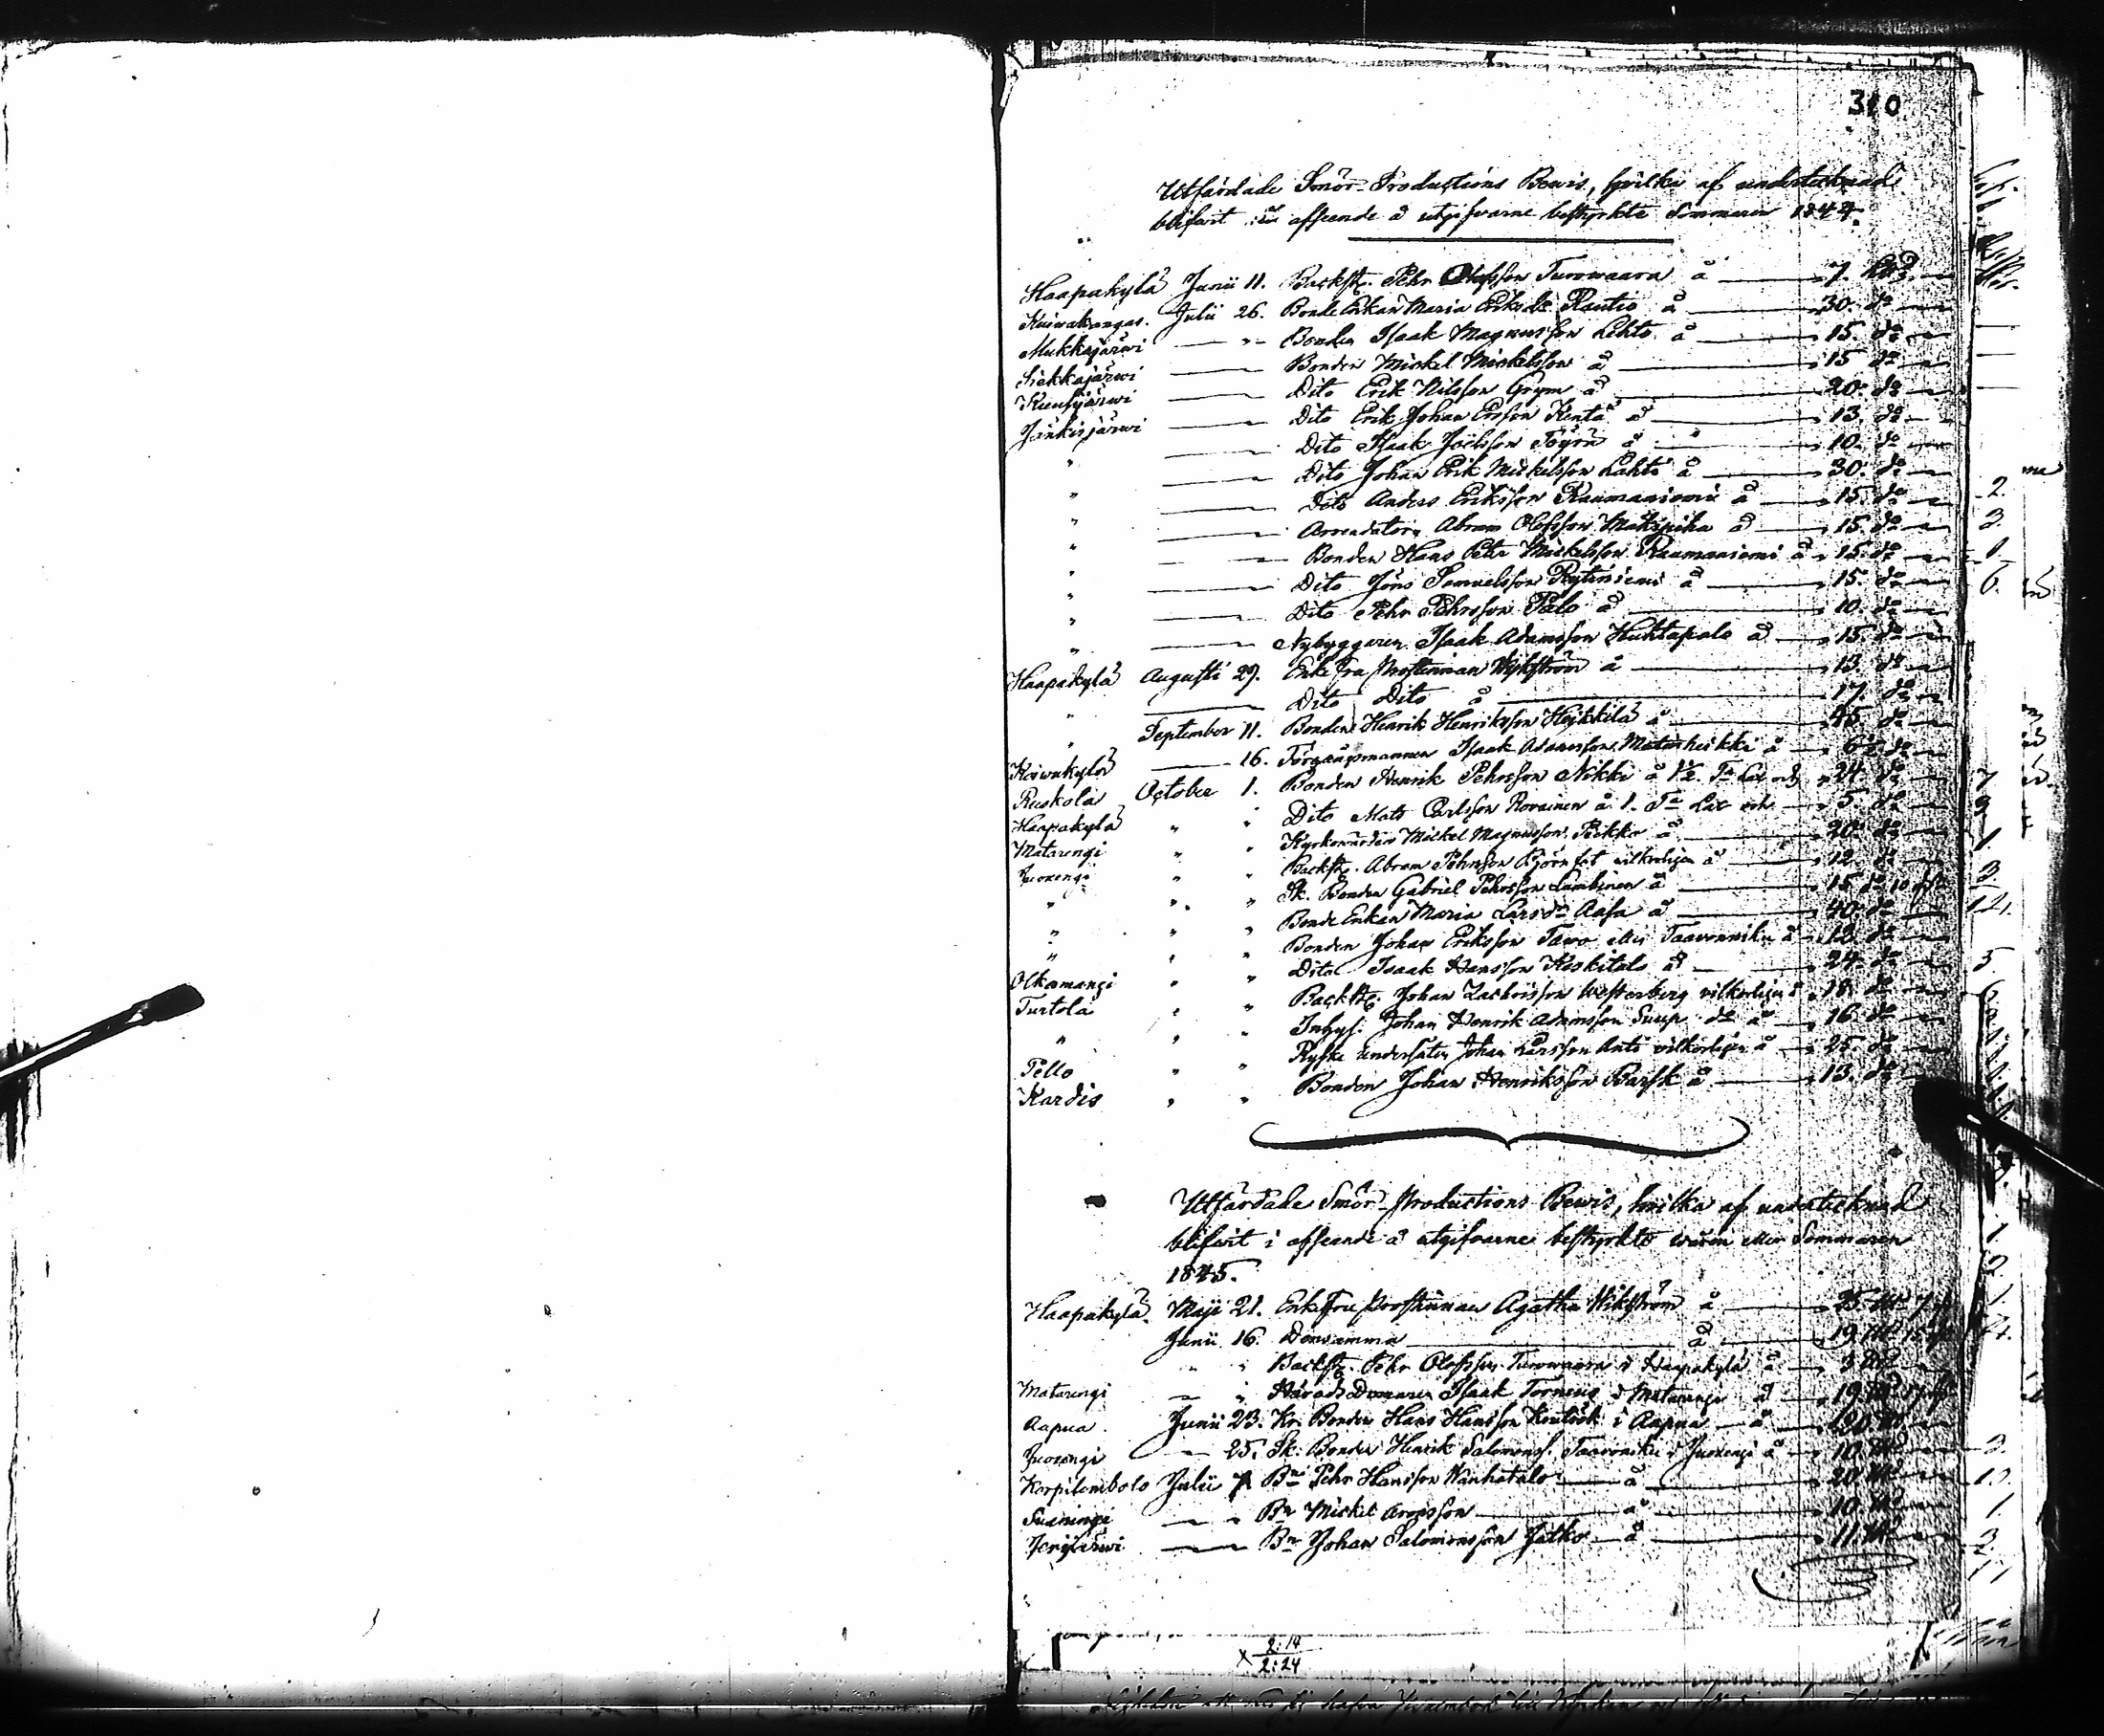 310
Utfärdade Smör-Productions Bewis, hvilka af undertecknad
blifvit i afseende å utgifvarne bestyrkte Sommaren 1844.
Haapakylä Junii 11. Backst. Pehr Olofsson Turowaara å 7. L℔
Kuiwakangas. Julii 26. Bonde Enkan Maria Eriksdr Rautio å 30. do
Mukkajärwi " Bonden Isaak Magnusson Lehto å 15. do
Siekkajärwi Bonden Mickel Mickelsson å 15 do
Kuusijärwi Dito Erik Nilsson Grym å 20. do
Jänkisjärwi Dito Erik Johan Ersson Kenta å 13. do
" Dito Isaak Joelsson Töyrä å 10. do
" Dito Johan Erik Mickelsson Lahti å 30. do
" Dito Anders Eriksson Raumaniemi å 15. do
" Arrendatorn Abram Olofsson Mäkipiha å 15. do
" Bonden Hans Petter Mickelsson Raumaniemi å 15. do
" Dito Jöns Samuelsson Rytiniemi å 15. do
" Dito Pehr Pehrsson Palo å 10. do
" Nybyggaren Isaak Adamsson Huhtapalo å 15. do
Haapakylä Augusti 29. Enke Fru Prostinnan Wikström å 13. do
" Dito Dito å 17. do
" September 11. Bonden Henrik Henriksson Heikkilä å 45. do
Koiwukylä 16. Förgångsmannen Isaak Adamsson å 6½ do
Ruskola October 1. Bonden Henrik Pehrsson Nikki å 1½ Ta Lax och 24. do
Haapakylä " " Dito Mats Carlsson Rovainen å 1. Ta Lax och 5. do
Matarengi " " Kyrkowärden Mickel Magnusson Pekka å 20. do
Juoxengi " " Backst. Abram Pehrsson Björnfot vilkorligen å 12. do
" " " Sk. Bonden Gabriel Pehrsson Lambinen å 15 do 10
" " " Bonde Enkan Maria Larsdr Aasa å 40. do
" " " Bonden Johan Eriksson Tawo eller Taavonniku å 12. do
Olkamangi " " Dito Isaak Hansson Keskitalo å 24. do
Turtola " " Backst. Johan Zachrisson Westerberg vilkorligen å 18. do
" " " Inhys. Johan Henrik Adamsson Suup do å 16. do
Pello " " Ryske Undersåten Johan Larsson Anti vilkorligen å 25. do
Kardis " " Bonden Johan Henriksson Barsk å 13. do
Utfärdade Smör-Productions Bewis, hvilka af undertecknad
blifvit i afseende å utgifvarne bestyrkte wåren eller Sommaren
1845.
Haapakylä Maji 21. Enke Fru Prostinnan Agatha Wikström å 25
Junii 16. Densamma å 19
" " Backst. Pehr Olofsson Turowaara i Haapakylä å 3
Matarengi " Härads Domaren Isaak Torneus i Matarengi å 19
Aapua. Junii 23. Kr. Bonden Hans Hansson Koutock i Aapua å 20
Juoxengi 25. Sk. Bonden Henrik Salomonss. Taavoniku i Juoxengi å 10
Korpilombolo Julii 7 Bn Pehr Hansson Wanhatalo å 20
Suaningi " Bn Mickel Aronsson å 10.
Jerijärwi Bn Johan Salomonsson Jatko å 11.
2:14
× 2:24